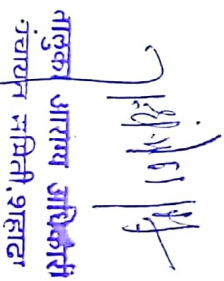 तालुका आरोग्य अधिकारी
पंचायत समिती, शहादा